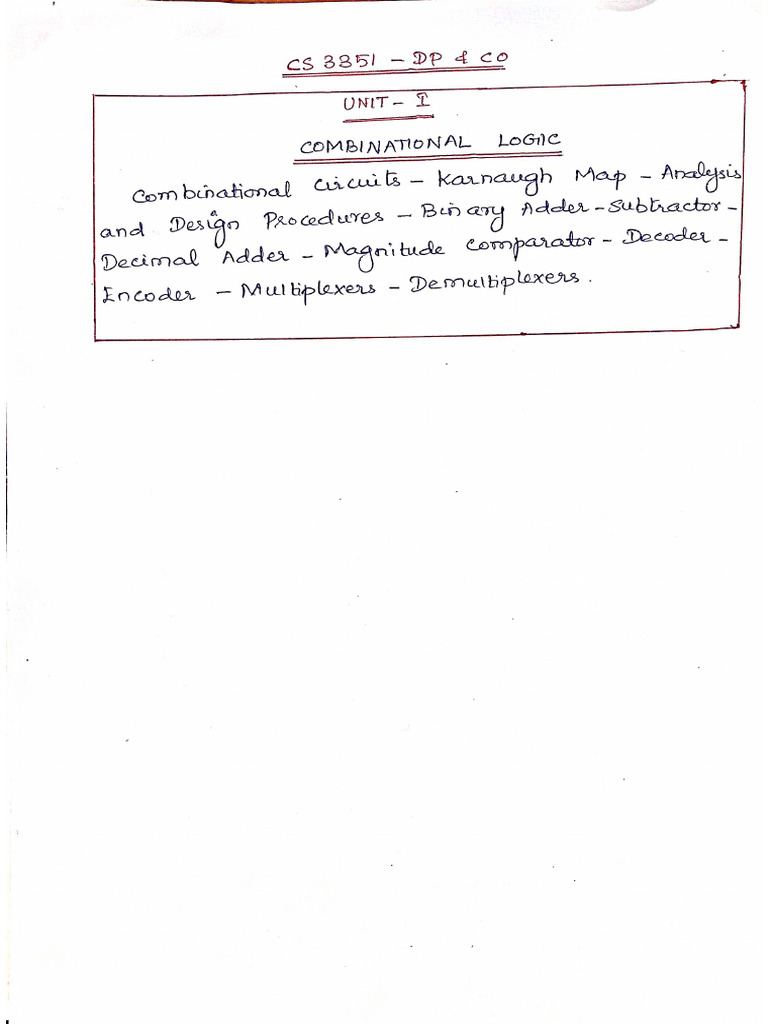 CS 3351 - DP & CO
UNIT - I
COMBINATIONAL LOGIC
Combinational Circuits - Karnaugh Map - Analysis
and Design Procedures - Binary Adder - Subtractor -
Decimal Adder - Magnitude Comparator - Decoder -
Encoder - Multiplexers - Demultiplexers.